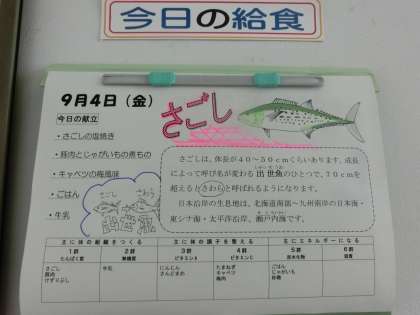 今日の給食
9月4日（金）
さごし
今日の献立
・さごしの塩焼き
・豚肉とじゃがいもの煮もの
・キャベツの梅風味
・ごはん
・牛乳
さごしは、体長が40～50cmくらいあります。成長
によって呼び名が変わる出世魚のひとつで、70cmを
超えるとさわらと呼ばれるようになります。
日本沿岸の生息地は、北海道南部～九州南岸の日本海・
東シナ海・太平洋沿岸、瀬戸内海です。
出世魚
主に体の組織をつくる 主に体の調子を整える 主にエネルギーになる
1群 2群 3群 4群 5群 6群
たんぱく質 無機質 ビタミンA ビタミンC 炭水化物 脂質
さごし 牛乳 にんじん たまねぎ ごはん
豚肉 さんどまめ キャベツ じゃがいも
けずりぶし 梅肉 砂糖